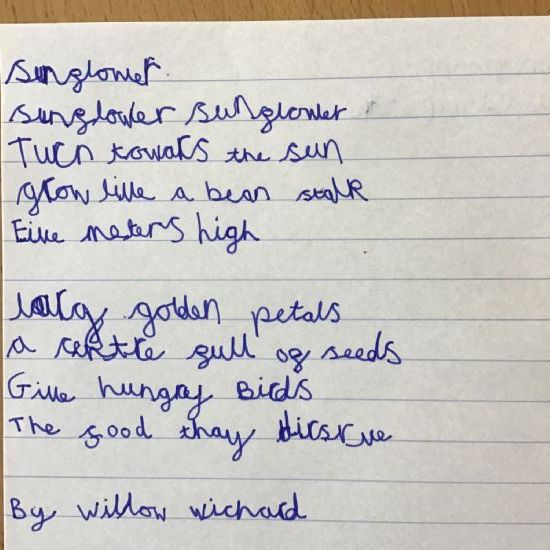 Sunflower
sunflower sunflower
Turn towards the sun
grow like a bean stalk
Five meters high
larg golden petals
a centre full of seeds
Give hungry Birds
The food thay dirsrve
By willow wichard